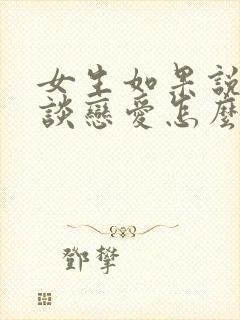 女生如果說
談戀愛怎麼
鄧攀